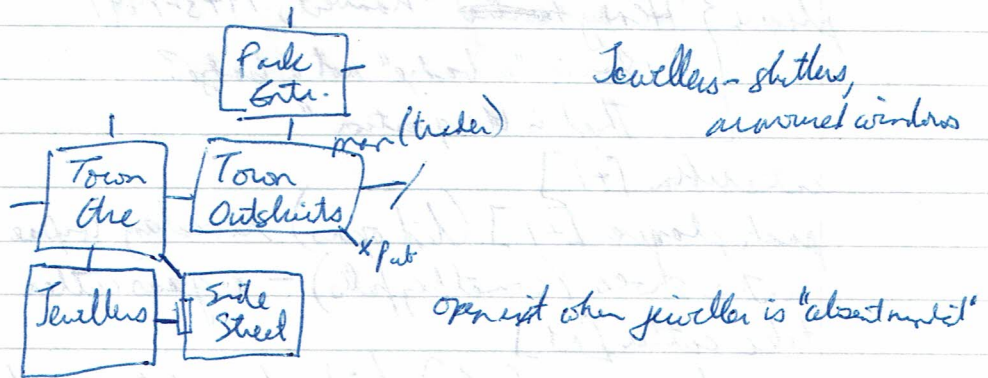 Park
Entr.
Jewellers - shutters,
armoured windows
man (trader)
Town
Ctre
Town
Outskirts
x Pub
Jewellers
Side
Street
open exit when jeweller is "absentminded"